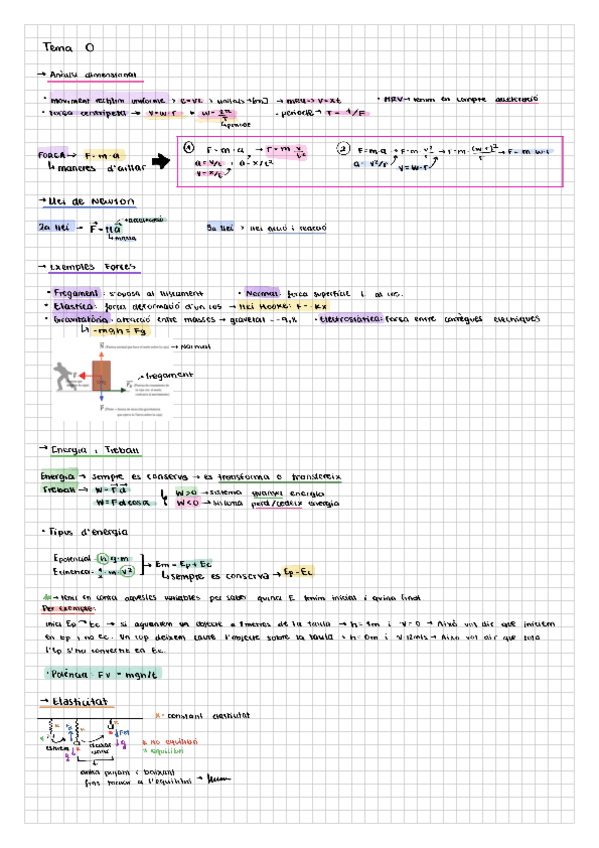 Tema 0
→ Anàlisi dimensional
• moviment rectilini uniforme > e=vt > unitats → [m] → MRU → v = x t • MRV → tenim en compte acceleració
• Força centrípeta → v = w · r • w = 2π/T • període → T = 1/F
↳ període
FORÇA → F = m · a
↳ maneres d'aïllar
① F = m · a → F = m · x/t²
a = v/t , a = x/t²
v = x/t
② F = m · a → F = m · v²/r → F = m · (w·r)²/r → F = m · w · r
a = v²/r v = w · r
→ Llei de Newton
2a llei → F = m a → acceleració
↳ massa
3a llei > llei acció i reacció
→ Exemples Forces
• Fregament: s'oposa al lliscament • Normal: força superfície
• Elàstica: força deformació d'un cos → Llei HOOKE: F = -Kx
• Gravitatòria: atracció entre masses → gravetat = -9,8 • Electrostàtica: Força entre càrregues elèctriques
↳ -m·g·h = Fg
→ Normal
→ fregament
→ Energia i Treball
Energia → sempre es conserva → es transforma o transfereix
Treball → W = F d
W = F d cos α
W > 0 → sistema guanya energia
W < 0 → sistema perd/cedeix energia
• Tipus d'energia
Epotencial = h · g · m
Ecinètica = 1/2 · m · v²
→ Em = Ep + Ec
↳ sempre es conserva → Ep = Ec
→ tenir en compte aquestes variables per saber quina E tenim inicial i quina final
Per exemple:
inici Ep → Ec → si aguantem un objecte a 1 metres de la taula → h = 1m i v = 0 → Això vol dir que iniciem
en Ep i no Ec. Un cop deixem caure l'objecte sobre la taula → h = 0m i v = 12m/s → Això vol dir que tota
l'Ep s'ha convertit en Ec.
• Potència: F v = mgh/t
→ Elasticitat
K = constant elasticitat
no equilibri
equilibri
anirà pujant i baixant
fins tornar a l'equilibri →